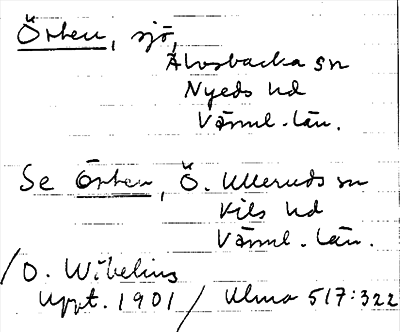 Örten, sjö,
Älvsbacka sn
Nyeds hd
Värml. län.
Se Örten, Ö. Ulleruds sn
Kils hd
Värml. län.
/O. Wibelius
Uppt. 1901/ Ulma 517:322